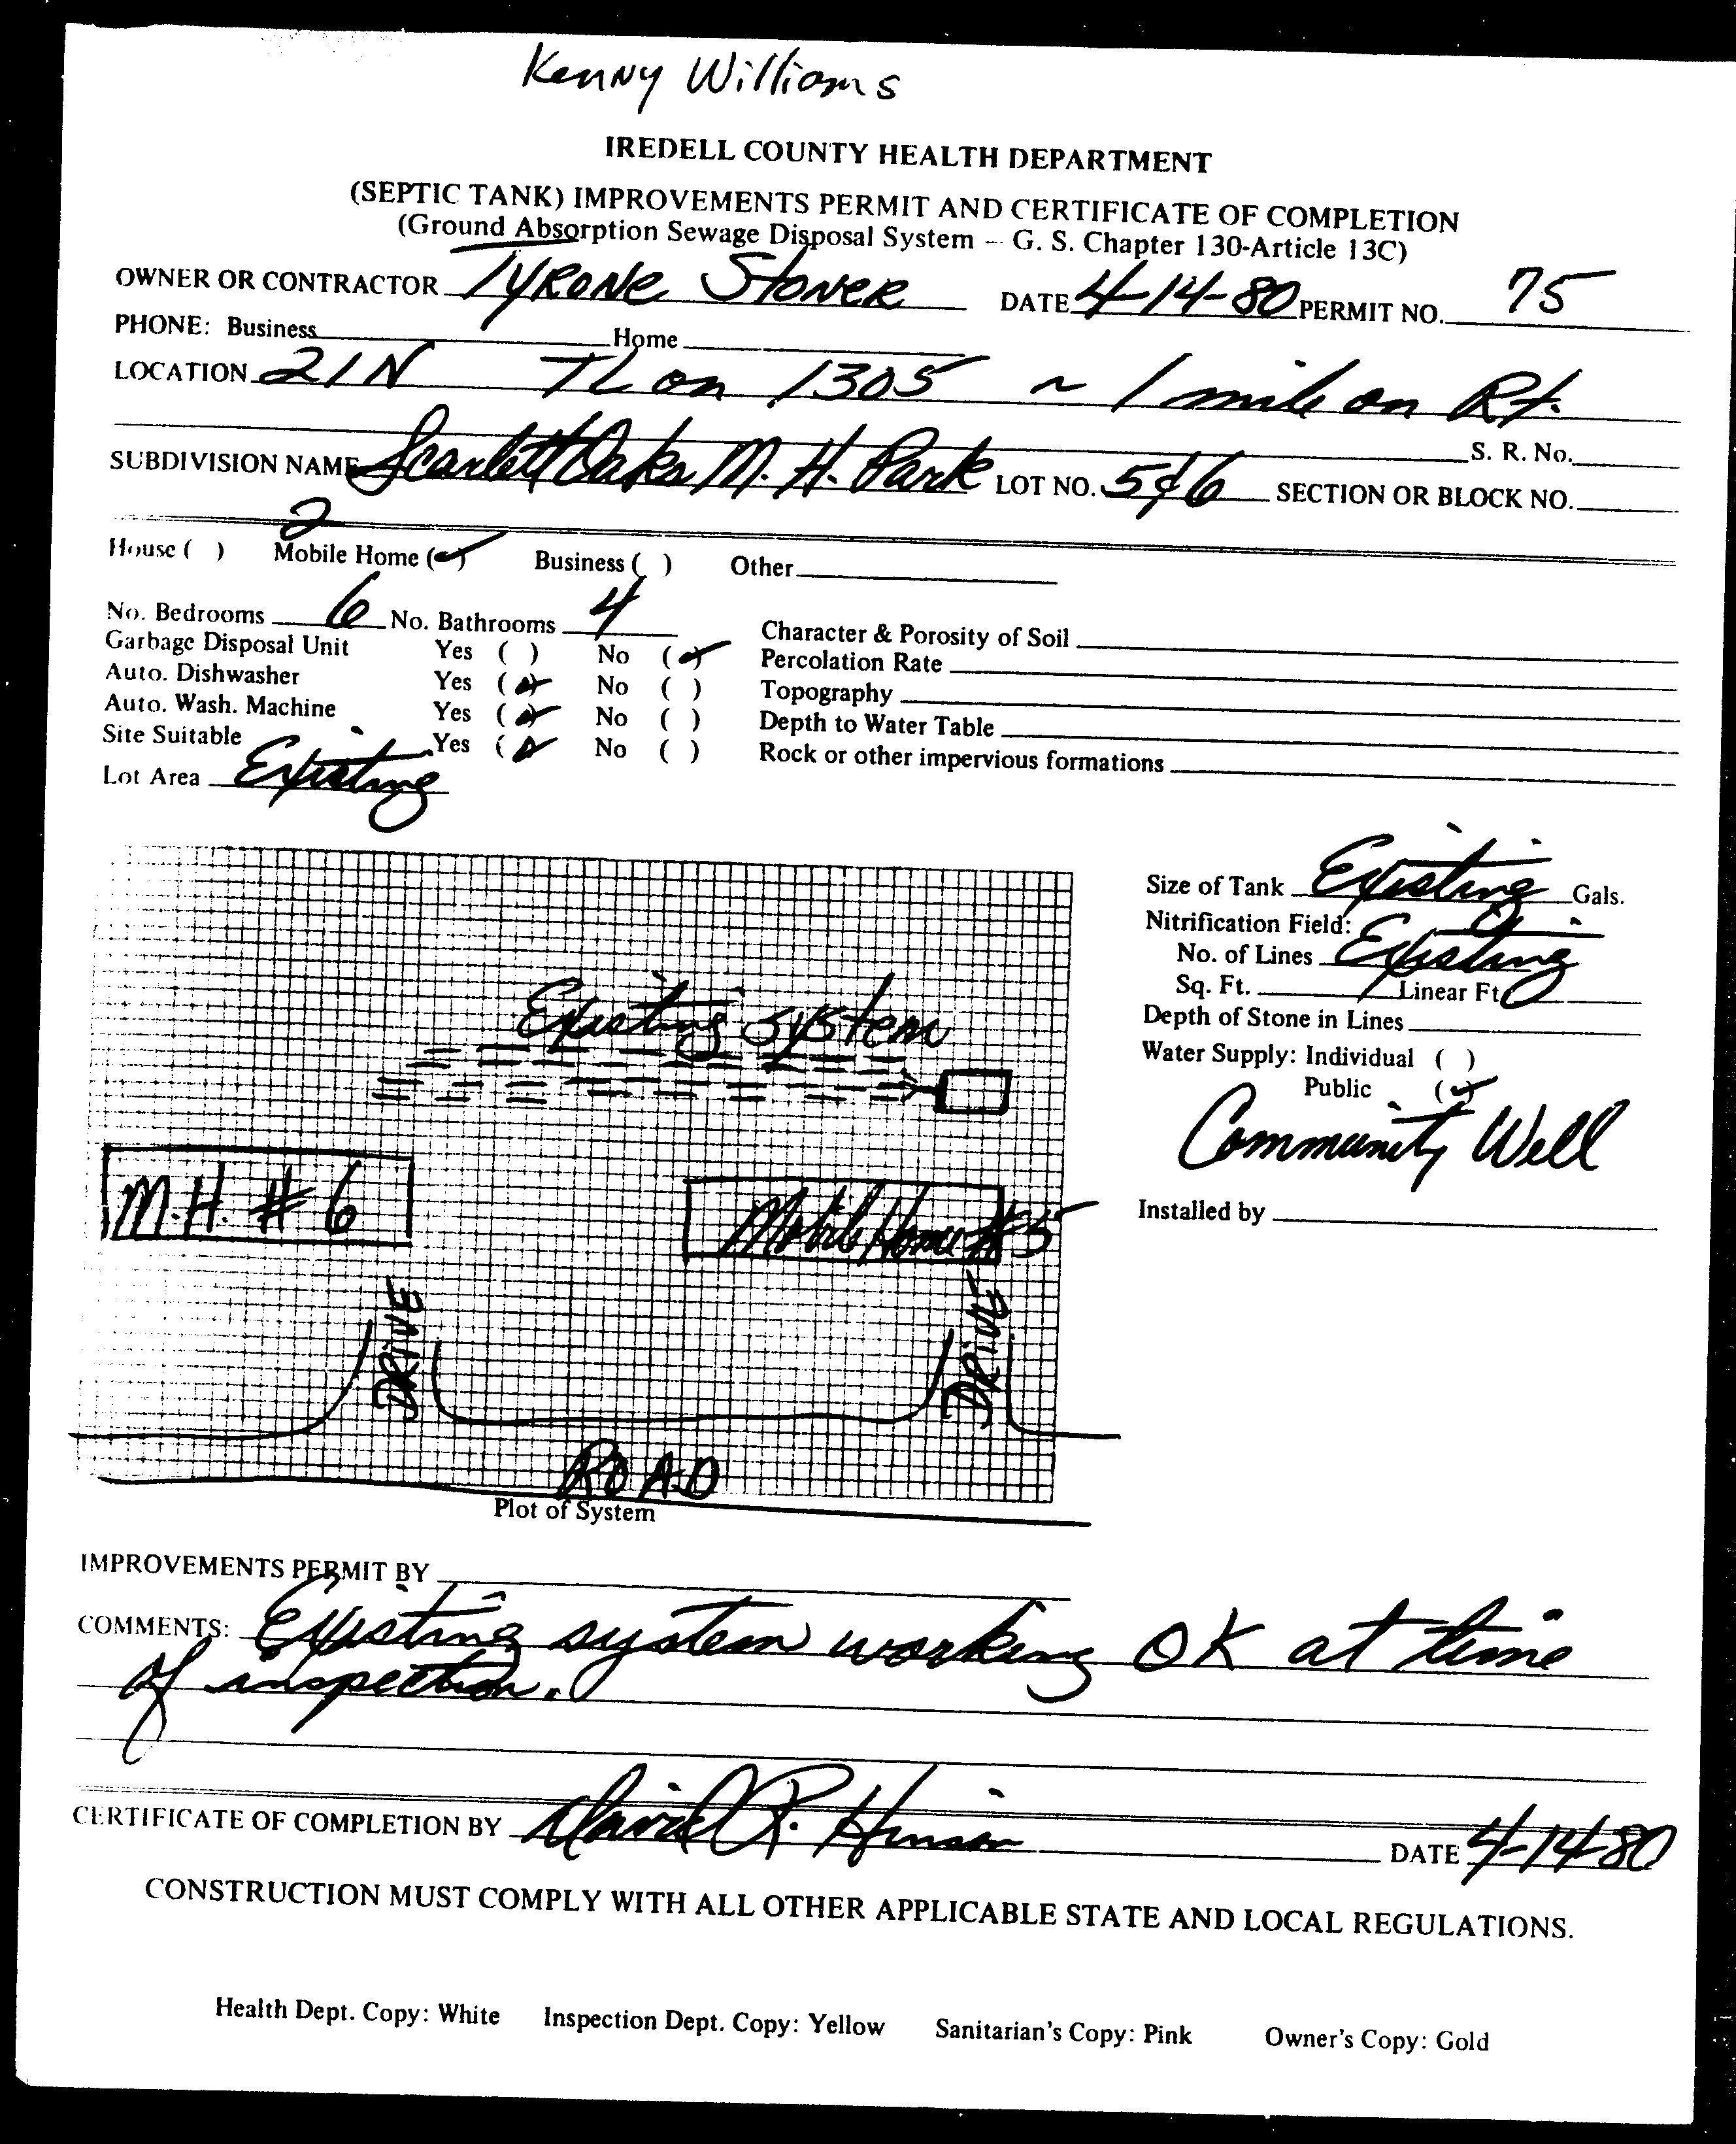 Kenny Williams
IREDELL COUNTY HEALTH DEPARTMENT
(SEPTIC TANK) IMPROVEMENTS PERMIT AND CERTIFICATE OF COMPLETION
(Ground Absorption Sewage Disposal System — G. S. Chapter 130-Article 13C)
OWNER OR CONTRACTOR Tyrone Stoner DATE 4-14-80 PERMIT NO. 75
PHONE: Business Home
LOCATION 21N TL on 1305 ~ 1 mile on Rt.
S. R. No.
SUBDIVISION NAME Scarlett Oaks M. H. Park LOT NO. 5 & 6 SECTION OR BLOCK NO.
2
House ( ) Mobile Home (✓) Business ( ) Other
No. Bedrooms 6 No. Bathrooms 4
Character & Porosity of Soil
Garbage Disposal Unit Yes ( ) No (✓)
Percolation Rate
Auto. Dishwasher Yes (✓) No ( )
Topography
Auto. Wash. Machine Yes (✓) No ( )
Depth to Water Table
Site Suitable Yes (✓) No ( )
Rock or other impervious formations
Lot Area Existing
Size of Tank Existing Gals.
Nitrification Field:
No. of Lines Existing
Sq. Ft. Linear Ft.
Depth of Stone in Lines
Water Supply: Individual ( )
Public (✓)
Community Well
Installed by
Existing system
M.H. # 6
Mobile Home #5
DRIVE
DRIVE
ROAD
Plot of System
IMPROVEMENTS PERMIT BY
COMMENTS: Existing system working OK at time
of inspection.
CERTIFICATE OF COMPLETION BY David R. Hinson DATE 4-14-80
CONSTRUCTION MUST COMPLY WITH ALL OTHER APPLICABLE STATE AND LOCAL REGULATIONS.
Health Dept. Copy: White Inspection Dept. Copy: Yellow Sanitarian's Copy: Pink Owner's Copy: Gold